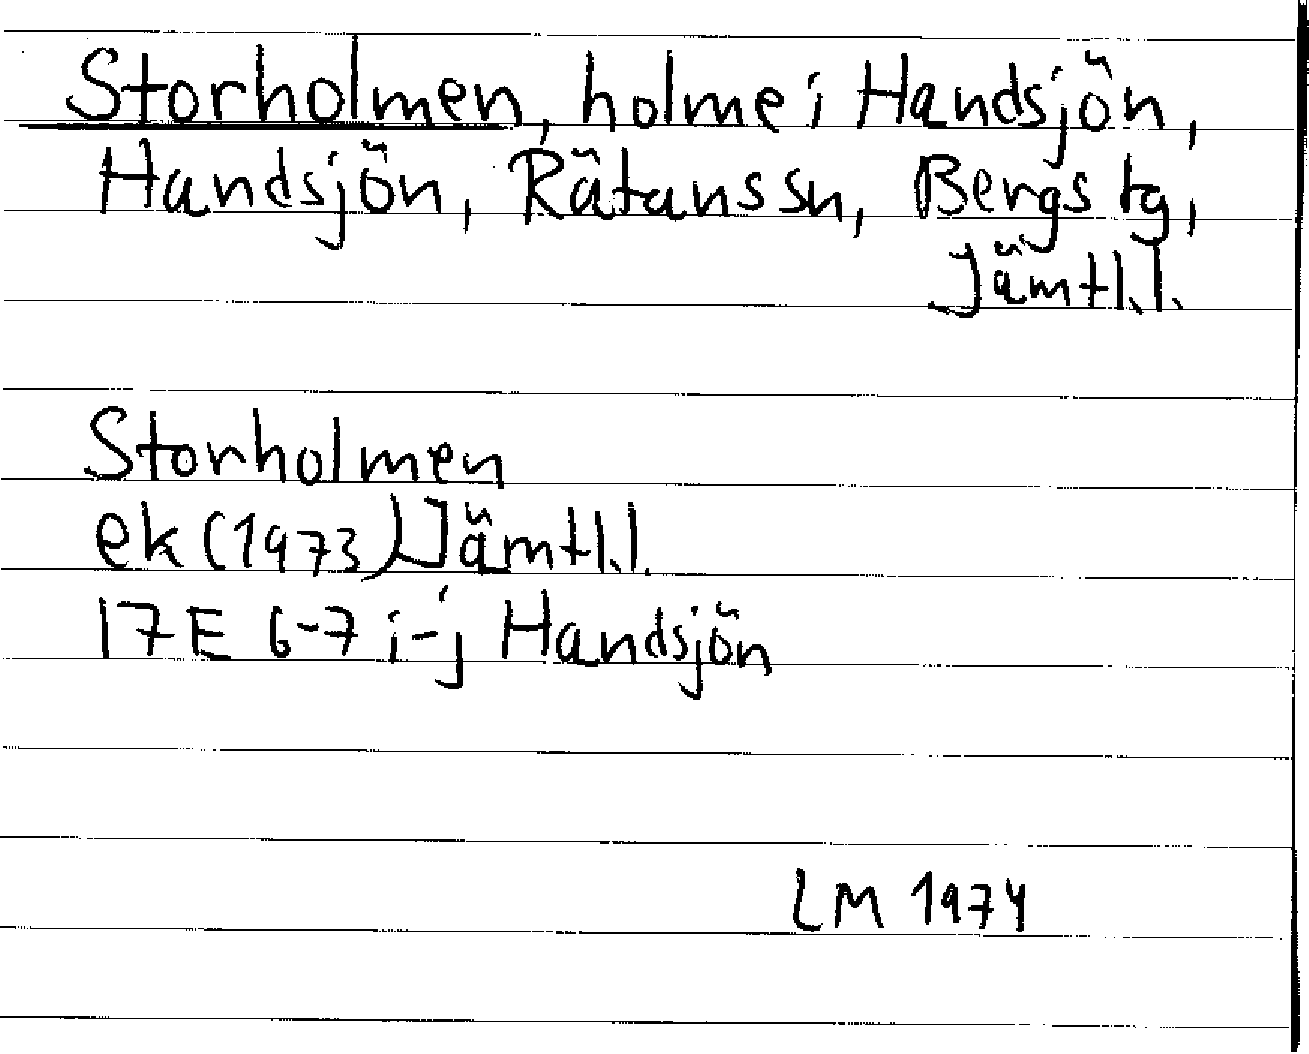 Storholmen, holme i Handsjön,
Handsjön, Rätans sn, Bergs tg,
Jämtl.l.
Storholmen
ek (1973) Jämtl.l.
17E 6-7 i-j Handsjön
LM 1974